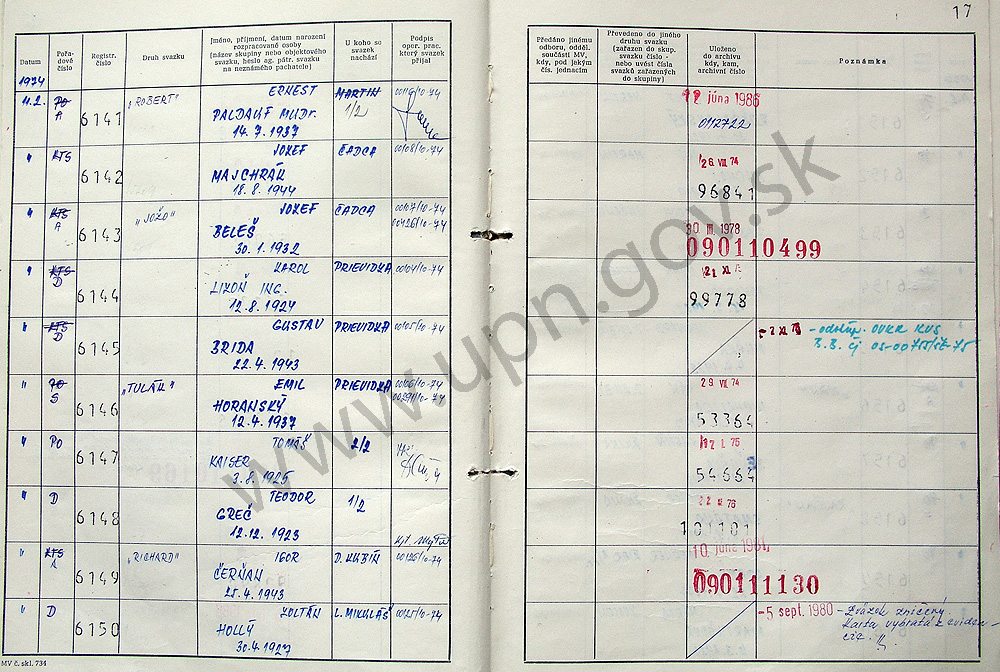 17
Datum
Pořa-
dové
číslo
Registr.
číslo
Druh svazku
Jméno, příjmení, datum narození
rozpracované osoby
(název skupiny nebo objektového
svazku, heslo ag. pátr. svazku
na neznámého pachatele)
U koho se
svazek
nachází
Podpis
oper. prac.
který svazek
přijal
Předáno jinému
odboru, odděl.
součásti MV,
kdy, pod jakým
čís. jednacím
Převedeno do jiného
druhu svazku
(zařazen do skup.
svazku číslo -
nebo uvést čísla
svazků zařazených
do skupiny)
Uloženo
do archivu
kdy, kam,
archivní číslo
Poznámka
1974
11.2. PO "ROBERT" ERNEST MARTIN 00116/10-74
A 6141 PALDAUF MUDr. 1/2
14.7.1937
12 júna 1986
0112722
" KTS JOZEF ČADCA 00108/10-74
6142 MAJCHRÁK
18.8.1944
26 VIII 74
96841
" KTS "JOŽO" JOZEF ČADCA 00107/10-74
A 6143 BELEŠ 00426/10-74
30.1.1932
30 III. 1978
090110499
" KTS KAROL PRIEVIDZA 00104/10-74
D 6144 ING.
12.8.1924
99778
" KTS GUSTAV PRIEVIDZA 00105/10-74
D 6145 BRIDA
22.4.1943
- odstúp. OVKR KVS
B.B. čj
" PO "TULÁK" EMIL PRIEVIDZA 00106/10-74
S 6146 HORANSKÝ 00291/10-74
12.4.1937
29 VIII 74
53364
" PO TOMÁŠ 2/2
6147 KAISER
3.8.1925
17 I. 75
54664
" D TEODOR 1/2
6148 GREČ
12.12.1923
22 IX 76
101101
" KTS "RICHARD" IGOR D. KUBÍN 00126/10-74
A 6149 ČERŇAN
25.4.1943
10 júna 1981
090111130
" D ZOLTÁN L. MIKULÁŠ 00125/10-74
6150 HOLLÝ
30.4.1927
- 5 sept. 1980 - Zväzok zničený.
Karta vybratá z eviden-
cie.
MV č. skl. 734
www.upn.gov.sk